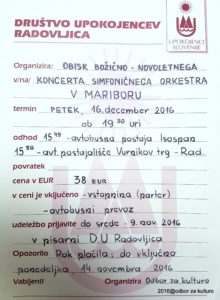 DRUŠTVO UPOKOJENCEV
RADOVLJICA
UPOKOJENCI
SLOVENIJE
Organizira: OBISK BOŽIČNO - NOVOLETNEGA
v/na/ KONCERTA SIMFONIČNEGA ORKESTRA
V MARIBORU
termin PETEK, 16. december 2016
ob 19.30 uri
odhod 15.45 - avtobusna postaja Isospan
15.50 - avt. postajališče Vurnikov trg - Rad.
povratek
cena v EUR 38 EUR
v ceni je vključeno - vstopnina (parter)
- avtobusni prevoz
udeležbo prijavite do srede - 9. nov. 2016
v pisarni DU Radovljica
Opozorilo Rok plačila: do vključno
ponedeljka, 14 novembra 2016
Vabljeni! Organizator Odbor za kulturo
2016@odbor za kulturo